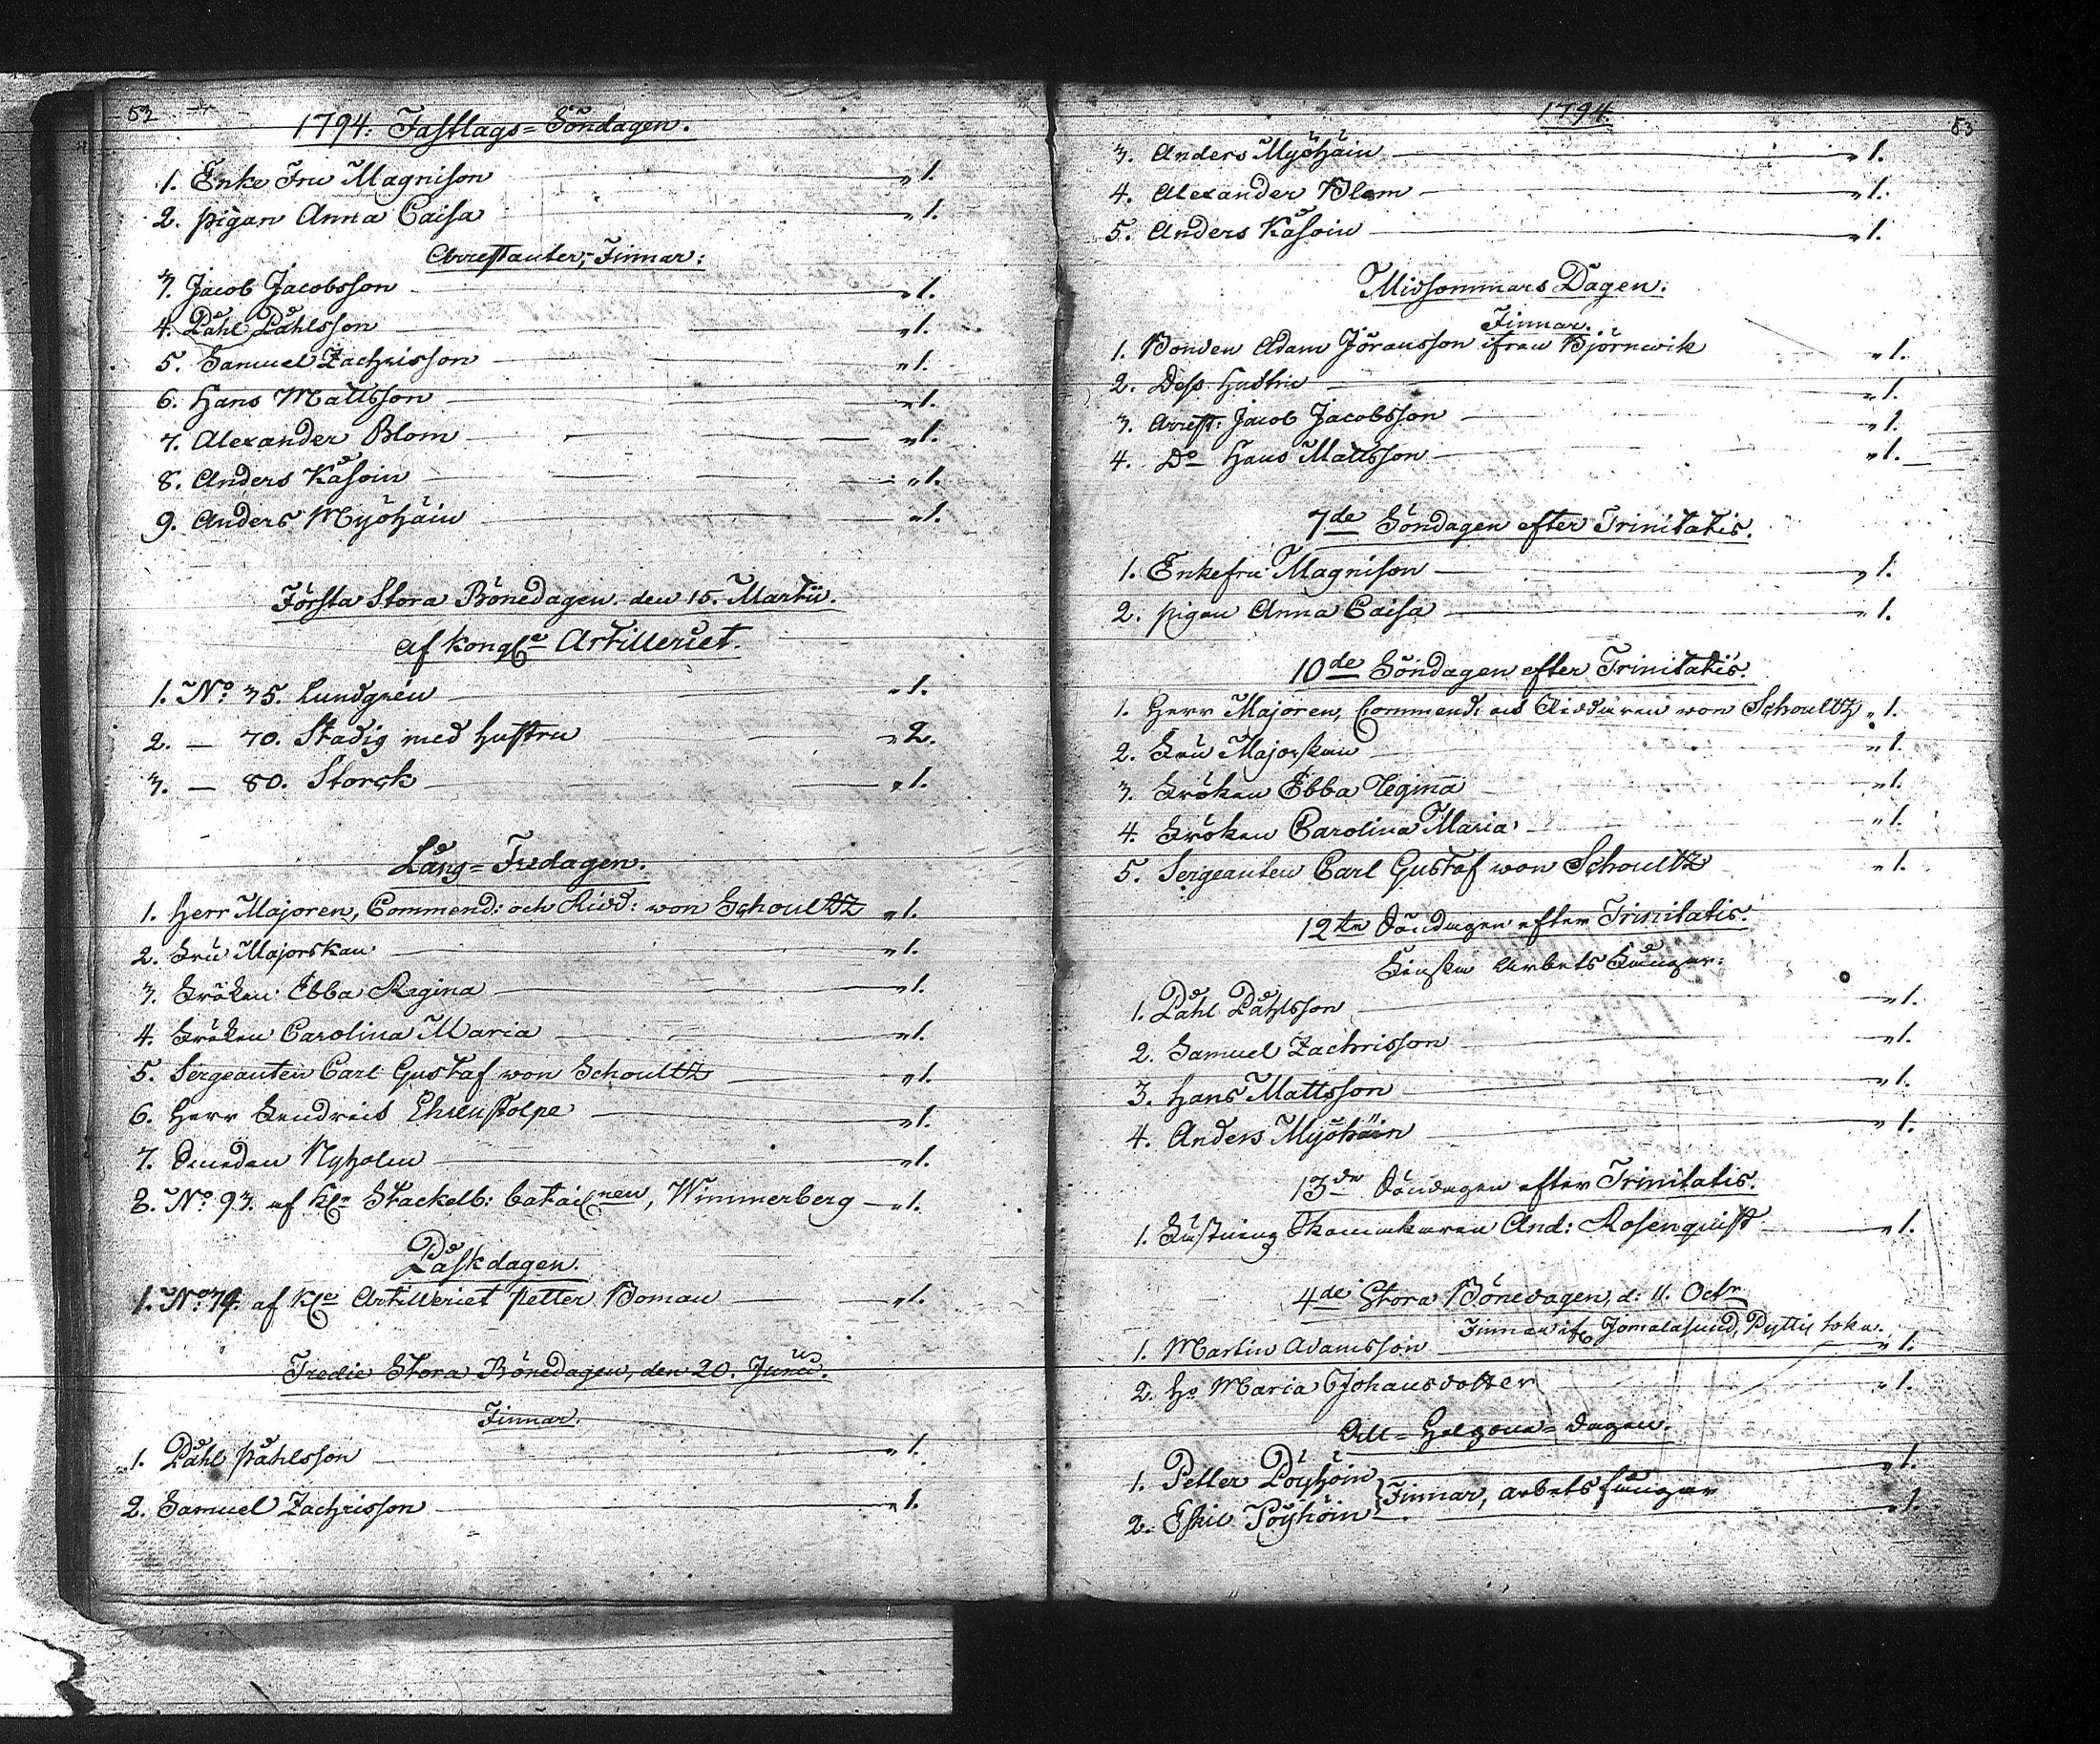 52
1794. Fastlags=Söndagen.
1. Enke Fru Magnison „ 1.
2. pigan Anna Caisa „ 1.
Arrestanter, Finnar:
3. Jacob Jacobsson „ 1.
4. Påhl Påhlsson „ 1.
5. Samuel Zachrisson „ 1.
6. Hans Mattsson „ 1.
7. Alexander Blom „ 1.
8. Anders Kåsoin „ 1.
9. Anders Myöhäin „ 1.
Första Stora Bönedagen. den 15. Martii.
af Kongl. Artilleriet.
1. No. 35. Lundgrén „ 1.
2. — 70. Stadig med hustru „ 2.
3. — 80. Storck „ 1.
Lång=Fredagen.
1. Herr Majoren, Commend: och Ridd: von Schoultz „ 1.
2. Fru Majorskan „ 1.
3. Fröken Ebba Regina „ 1.
4. Fröken Carolina Maria „ 1.
5. Sergeanten Carl Gustaf von Schoultz „ 1.
6. Herr Fendrick Ehrenstolpe „ 1.
7. Nyholm „ 1.
8. No. 93. af Kl. Stackelb: bataillnen, Wimmerberg „ 1.
Påskdagen.
1. No. 74. af Kl. Artilleriet Petter Boman „ 1.
Tredie Stora Bönedagen, den 20. Junii.
Finnar.
1. Påhl Påhlsson „ 1.
2. Samuel Zachrisson „ 1.
1794.
53
3. Anders Myöhäin „ 1.
4. Alexander Blom „ 1.
5. Anders Kåsoin „ 1.
Midsommars Dagen.
Finnar.
1. Bonden Adam Jöransson ifrån Björnwik „ 1.
2. Dess hustru „ 1.
3. Arrest: Jacob Jacobsson „ 1.
4. Do Hans Mattsson „ 1.
7de Söndagen efter Trinitatis.
1. Enkefru Magnison „ 1.
2. pigan Anna Caisa „ 1.
10de Söndagen efter Trinitatis.
1. Herr Majoren, Commend: och Riddaren von Schoultz „ 1.
2. Fru Majorskan „ 1.
3. Fröken Ebba Regina „ 1.
4. Fröken Carolina Maria „ 1.
5. Sergeanten Carl Gustaf von Schoultz „ 1.
12te Söndagen efter Trinitatis.
Finska Arbets Fångar.
1. Påhl Påhlsson „ 1.
2. Samuel Zachrisson „ 1.
3. Hans Mattsson „ 1.
4. Anders Myöhäin „ 1.
13de Söndagen efter Trinitatis.
1. Fästning Skomakaren And: Rosenquist „ 1.
4de Stora Bönedagen, d. 11. Octr.
Finnar if. Jomalasund, Pyttis sokn.
1. Martin Adamsson „ 1.
2. Ho Maria Johansdotter „ 1.
All=Helgona=dagen.
1. Petter Pöyhöin „ 1.
Finnar, arbetsfångar
2. Eskil Pöyhöin „ 1.